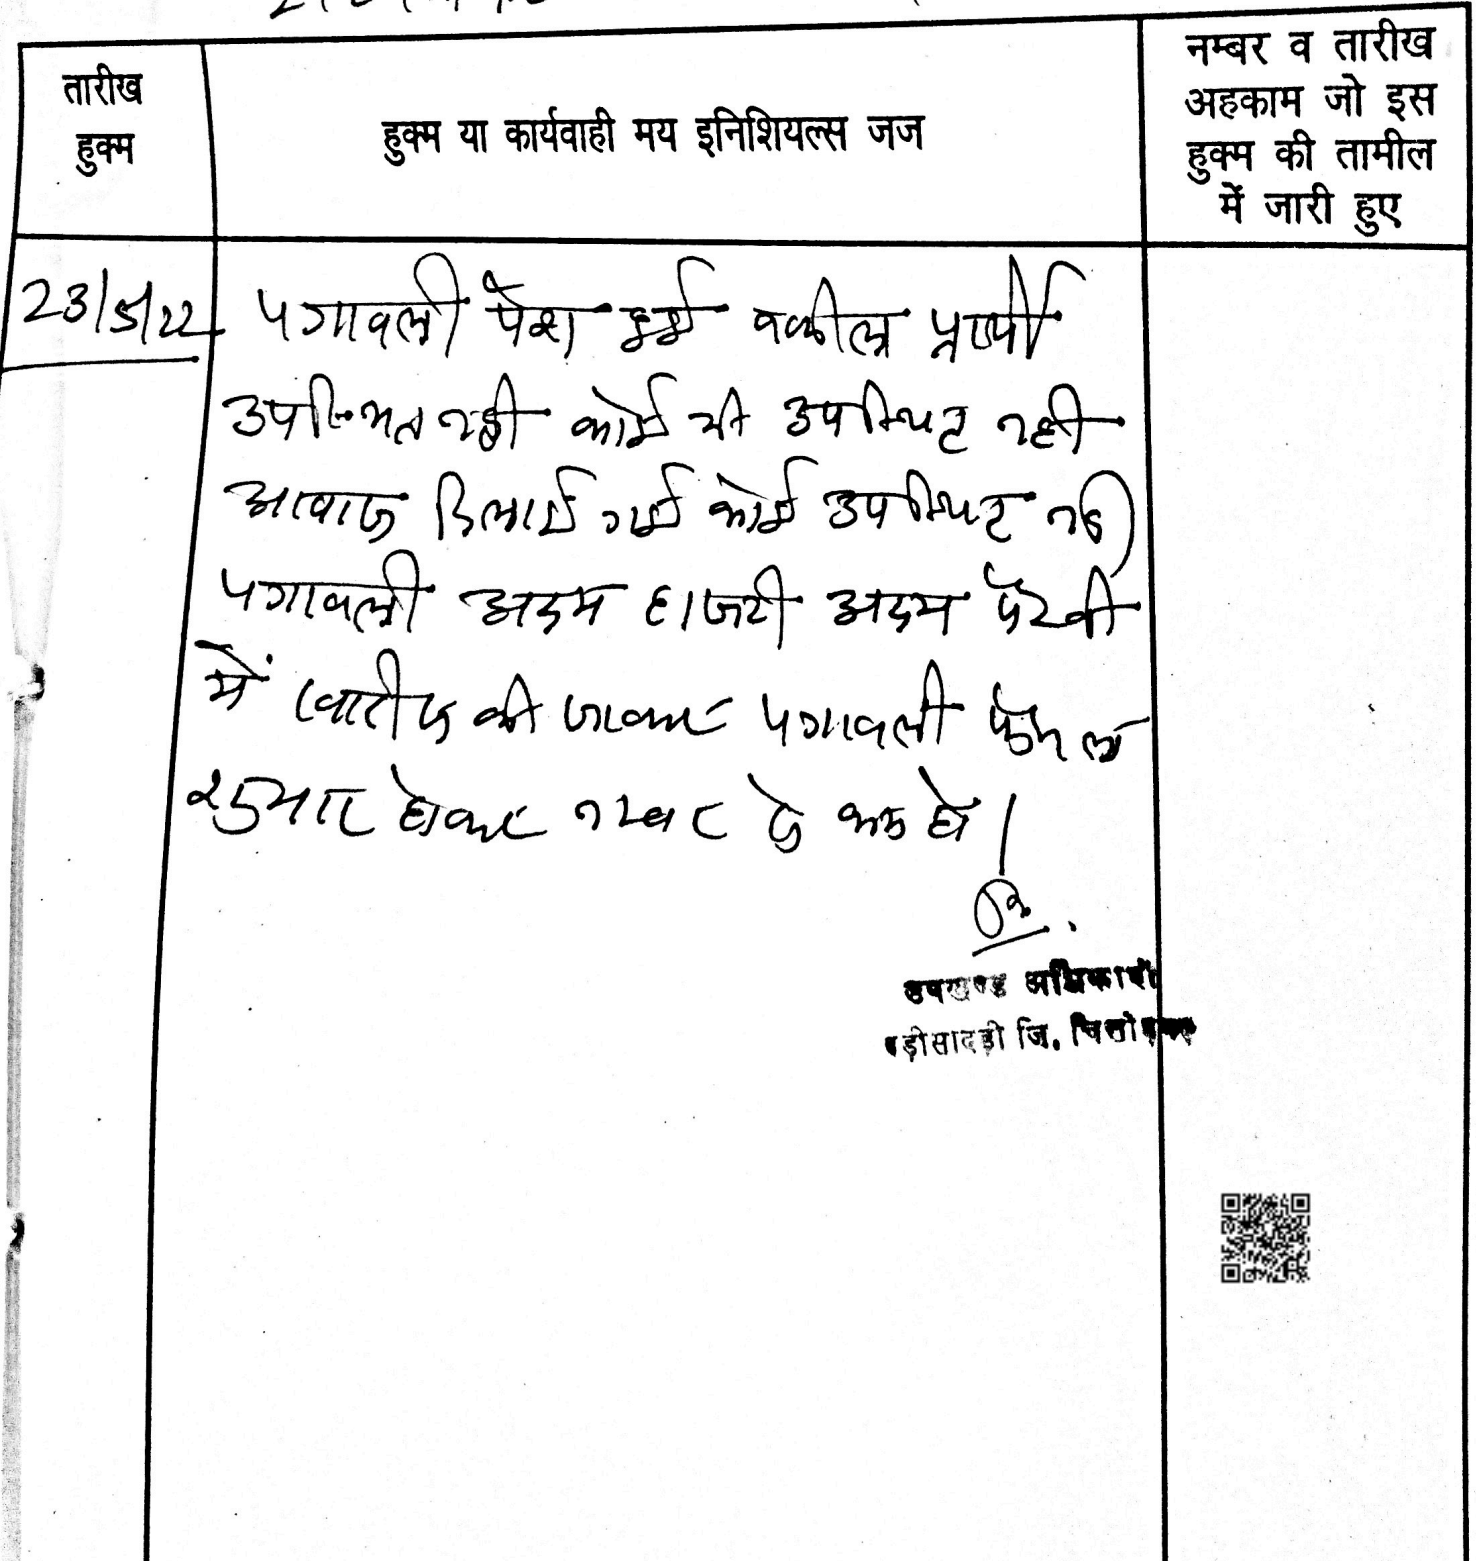 तारीख
हुक्म
हुक्म या कार्यवाही मय इनिशियल्स जज
नम्बर व तारीख
अहकाम जो इस
हुक्म की तामील
में जारी हुए
23/5/22
पत्रावली पेश हुई वकील प्रार्थी
उपस्थित नही कोई भी उपस्थित नही
आवाज दिलाई गई कोई उपस्थित नही
पत्रावली अदम हाजरी अदम पैरवी
में खारीज की जाकर पत्रावली फैसल
शुमार होकर नम्बर से कम हो।
उपखण्ड अधिकारी
बड़ीसादड़ी जि. चित्तोड़गढ़